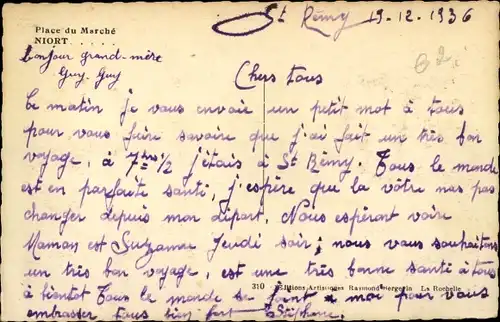 St Rémy 19-12-1936
Place du Marché
NIORT.....
bonjour grand-mère
Guy-Guy
Chers tous
Ce matin je vous envoie un petit mot à tous
pour vous faire savoire que j'ai fait un très bon
voyage, à 7 hrs 1/2 j'étais à St Rémy. Tous le monde
est en parfaite santi, j'espère que la vôtre nas pas
changer depuis mon départ. Nous espéront voire
Maman est Suzanne Jeudi soir; nous vous souhaitons
un très bon voyage, est une très bonne santi à tous
310 Editions Artistiques Raymond Bergevin La Rochelle
à bientôt Tous le monde se joint à moi pour vous
embrasser tous bien fort Stéphane.